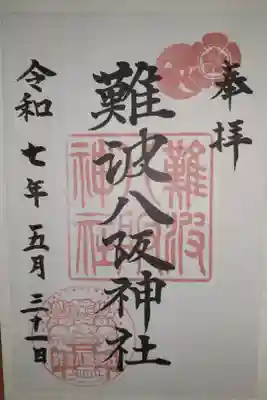 奉拝
難波八阪神社
難波八阪神社
令和七年五月三十一日